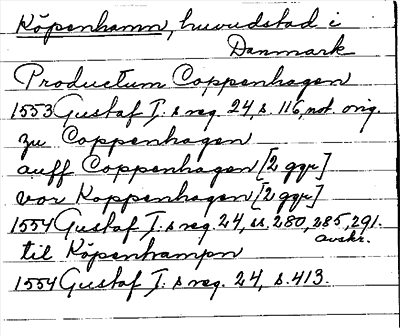 Köpenhamn, huvudstad i
Danmark
Productum Coppenhagen
1553 Gustaf I. s reg. 24, s. 116, not. orig.
zu Coppenhagen
auff Coppenhagen [2 ggr]
vor Koppenhagen [2 ggr]
1554 Gustaf I. s reg. 24, ss. 280, 285, 291.
avskr.
til Köpenhampn
1554 Gustaf I. s reg. 24, s. 413.